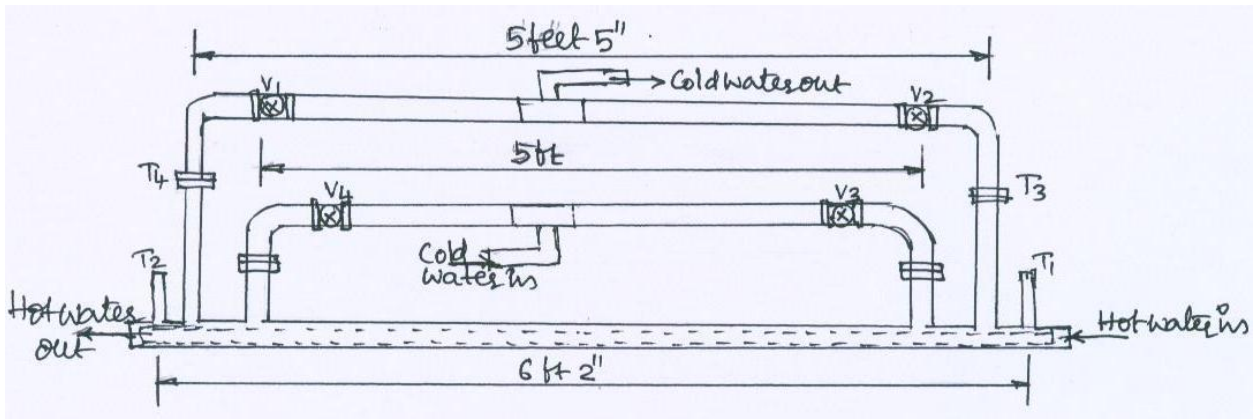 5 feet 5"
V1
Cold water out
V2
5 ft
T4
T3
V4
V3
Cold
water in
T2
T1
Hot water
out
Hot water in
6 ft 2"